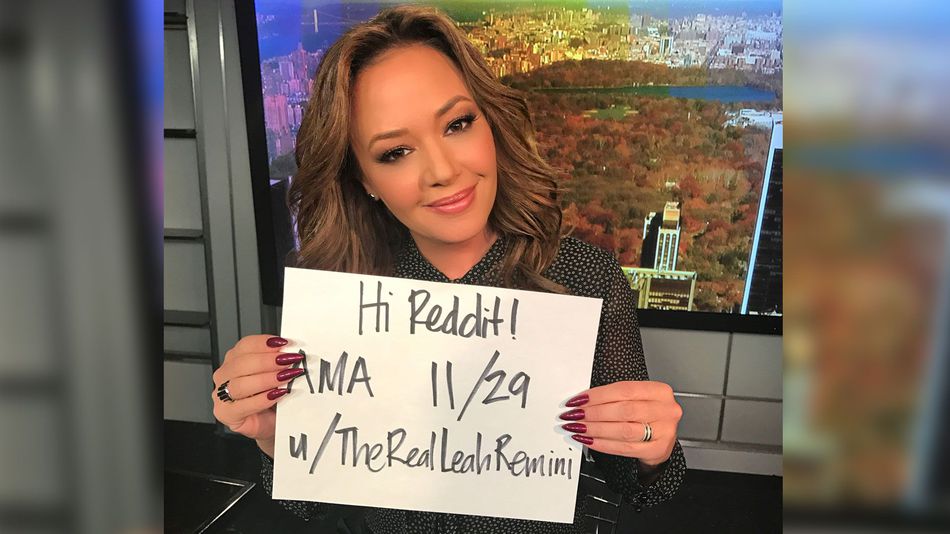 Hi Reddit!
AMA 11/29
u/TheRealLeahRemini